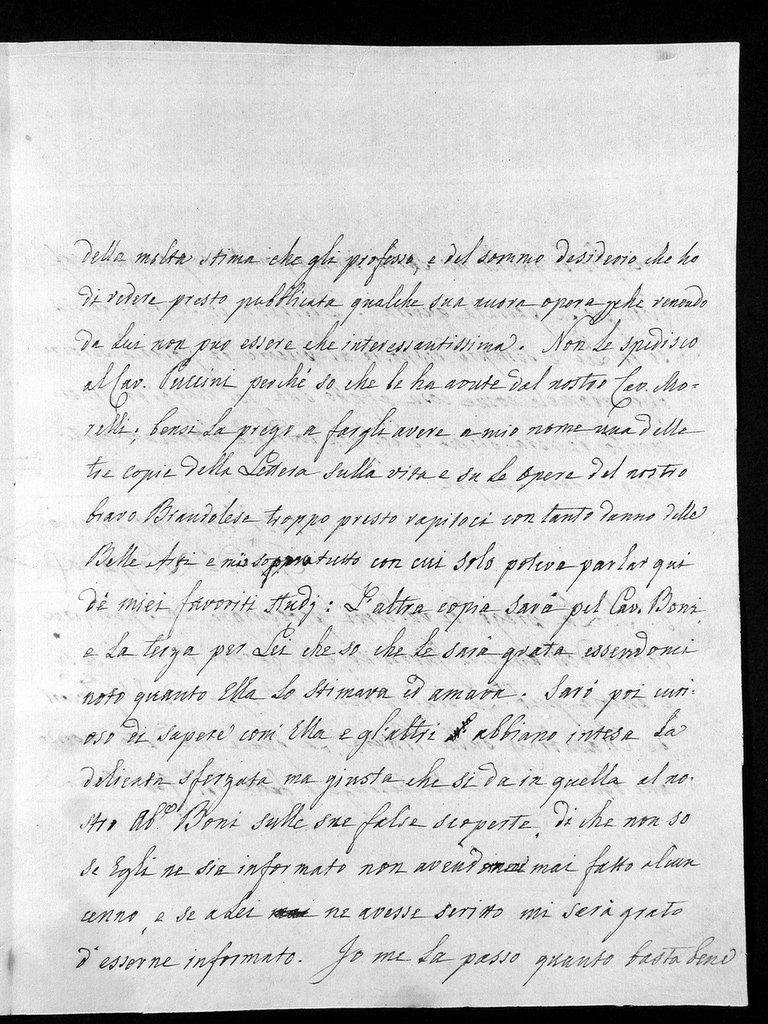 della molta stima che gli professo, e del sommo desiderio che ho
di vedere presto pubblicata qualche sua nuova opera che venendo
da Lui non può essere che interessantissima. Non Le spedisco
al Cav. Puccini perché so che le ha avute dal nostro Cav. Mo-
relli; bensi La prego a fargli avere a mio nome una delle
tre copie della Lettera sulla vita e su le opere del nostro
bravo Brandolese troppo presto rapitoci con tanto danno delle
Belle Arti e mio sopra tutto con cui solo poteva parlar qui
de' miei favoriti studj: L'altra copia sarà pel Cav. Boni,
e La terza per Lei che so che Le sarà grata essendomi
noto quanto Ella Lo stimava ed amava. Sarò poi curi-
oso di sapere com' Ella e gl'altri abbiano intesa La
delicata sferzata ma giusta che si da in quella al no-
stro Ab.e Boni sulle sue false scoperte, di che non so
se Egli ne sia informato non avendomi mai fatto alcun
cenno, e se a Lei ne avesse scritto mi sarà grato
d'esserne informato. Io me La passo quanto basta bene